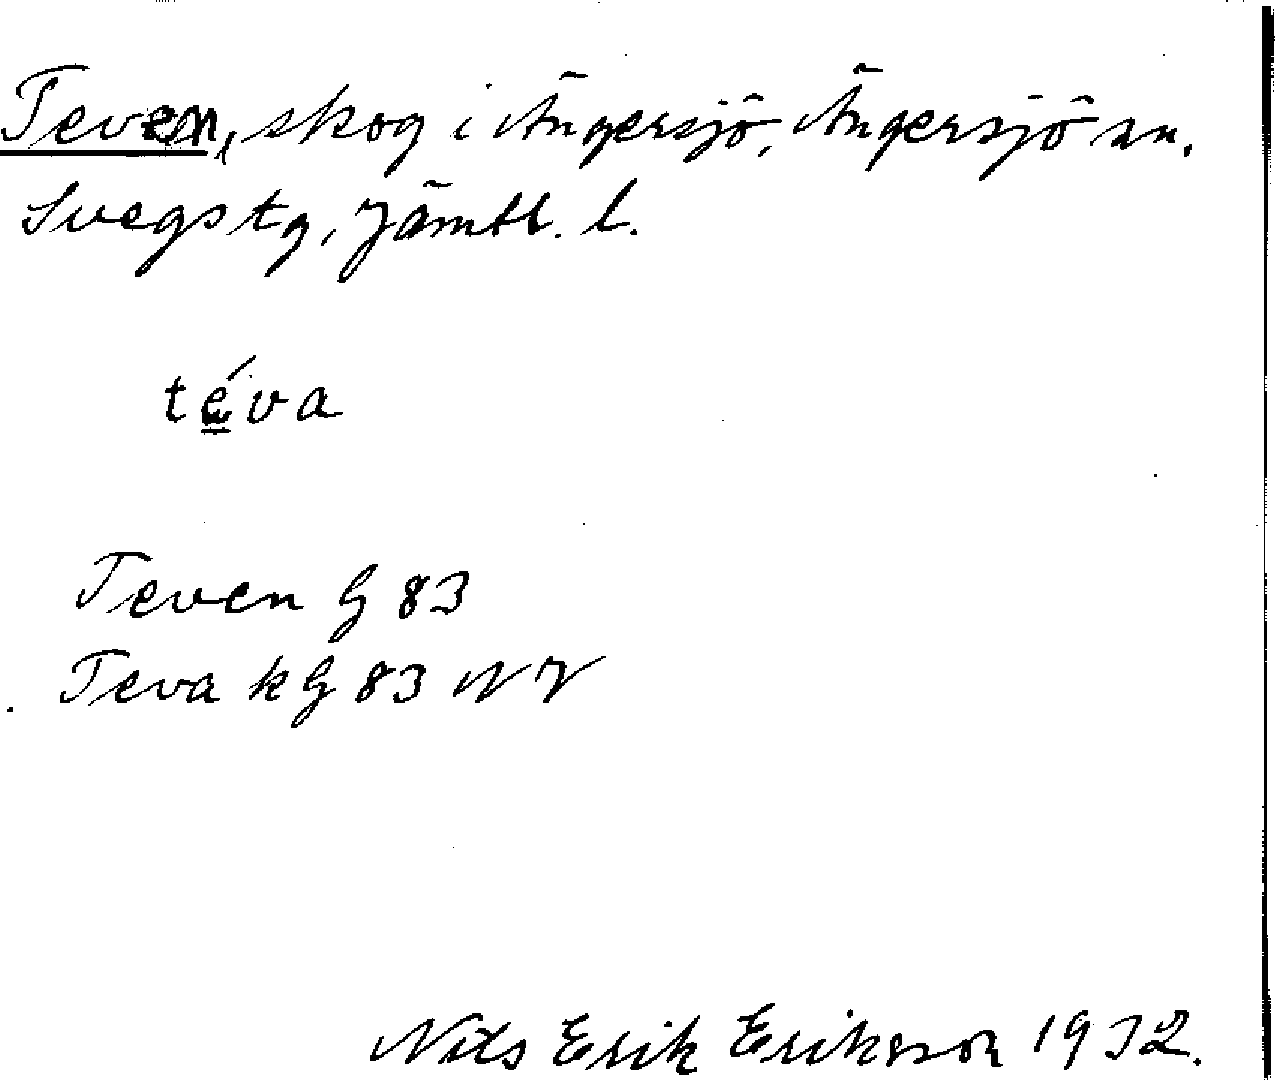 Teven, skog i Ängersjö, Ängersjö sn.
Svegs tg, Jämtl. l.
téva
Teven G 83
Teva kG 83 NV
Nils Erik Eriksson 1932.